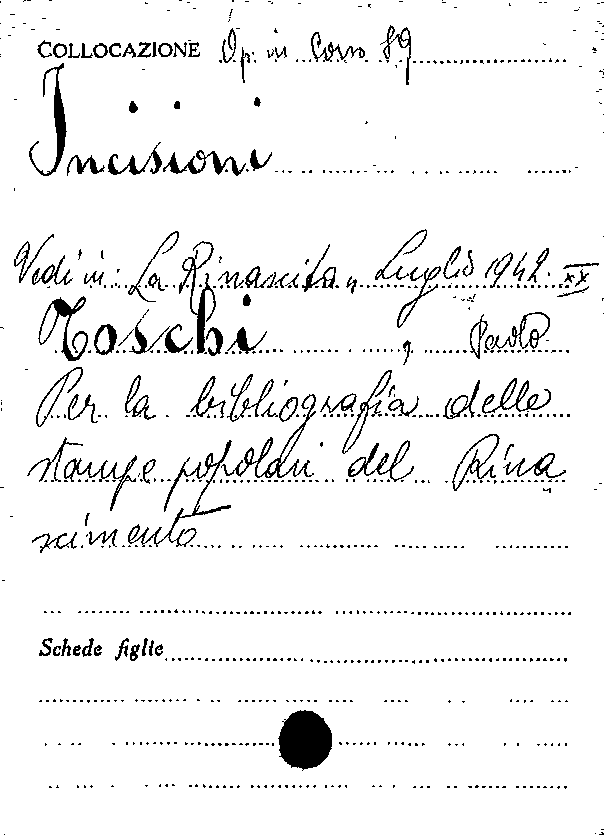 COLLOCAZIONE Op. in Corso 89
Incisioni
Vedi in: La Rinascita, Luglio 1942. XX
Toschi, Paolo
Per la bibliografia delle
stampe popolari del Rina
scimento
Schede figlie